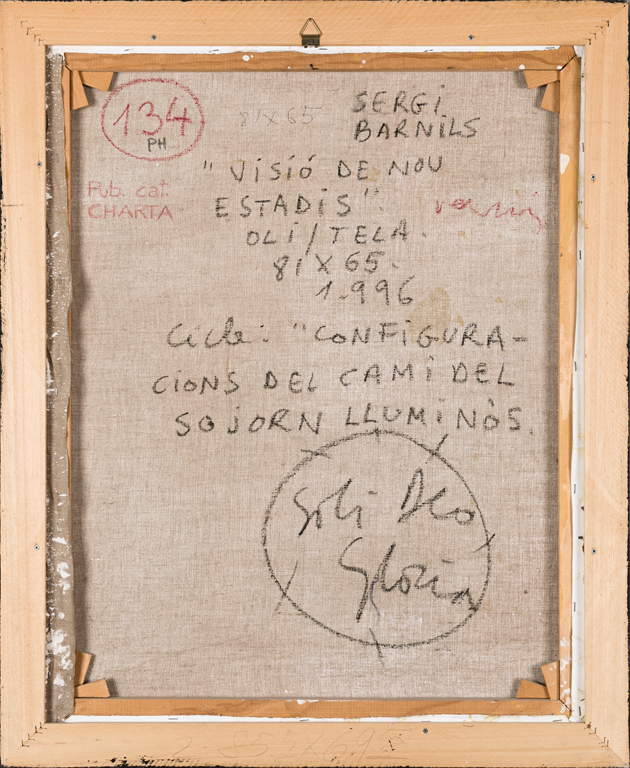 134
PH
81X65
SERGI
BARNILS
"VISIÓ DE NOU
ESTADIS".
OLI/TELA.
81X65.
1.996
Pub. cat.
CHARTA
Cicle: "CONFIGURA-
CIONS DEL CAMI DEL
SOJORN LLUMINÒS.
Soli Deo
Gloria